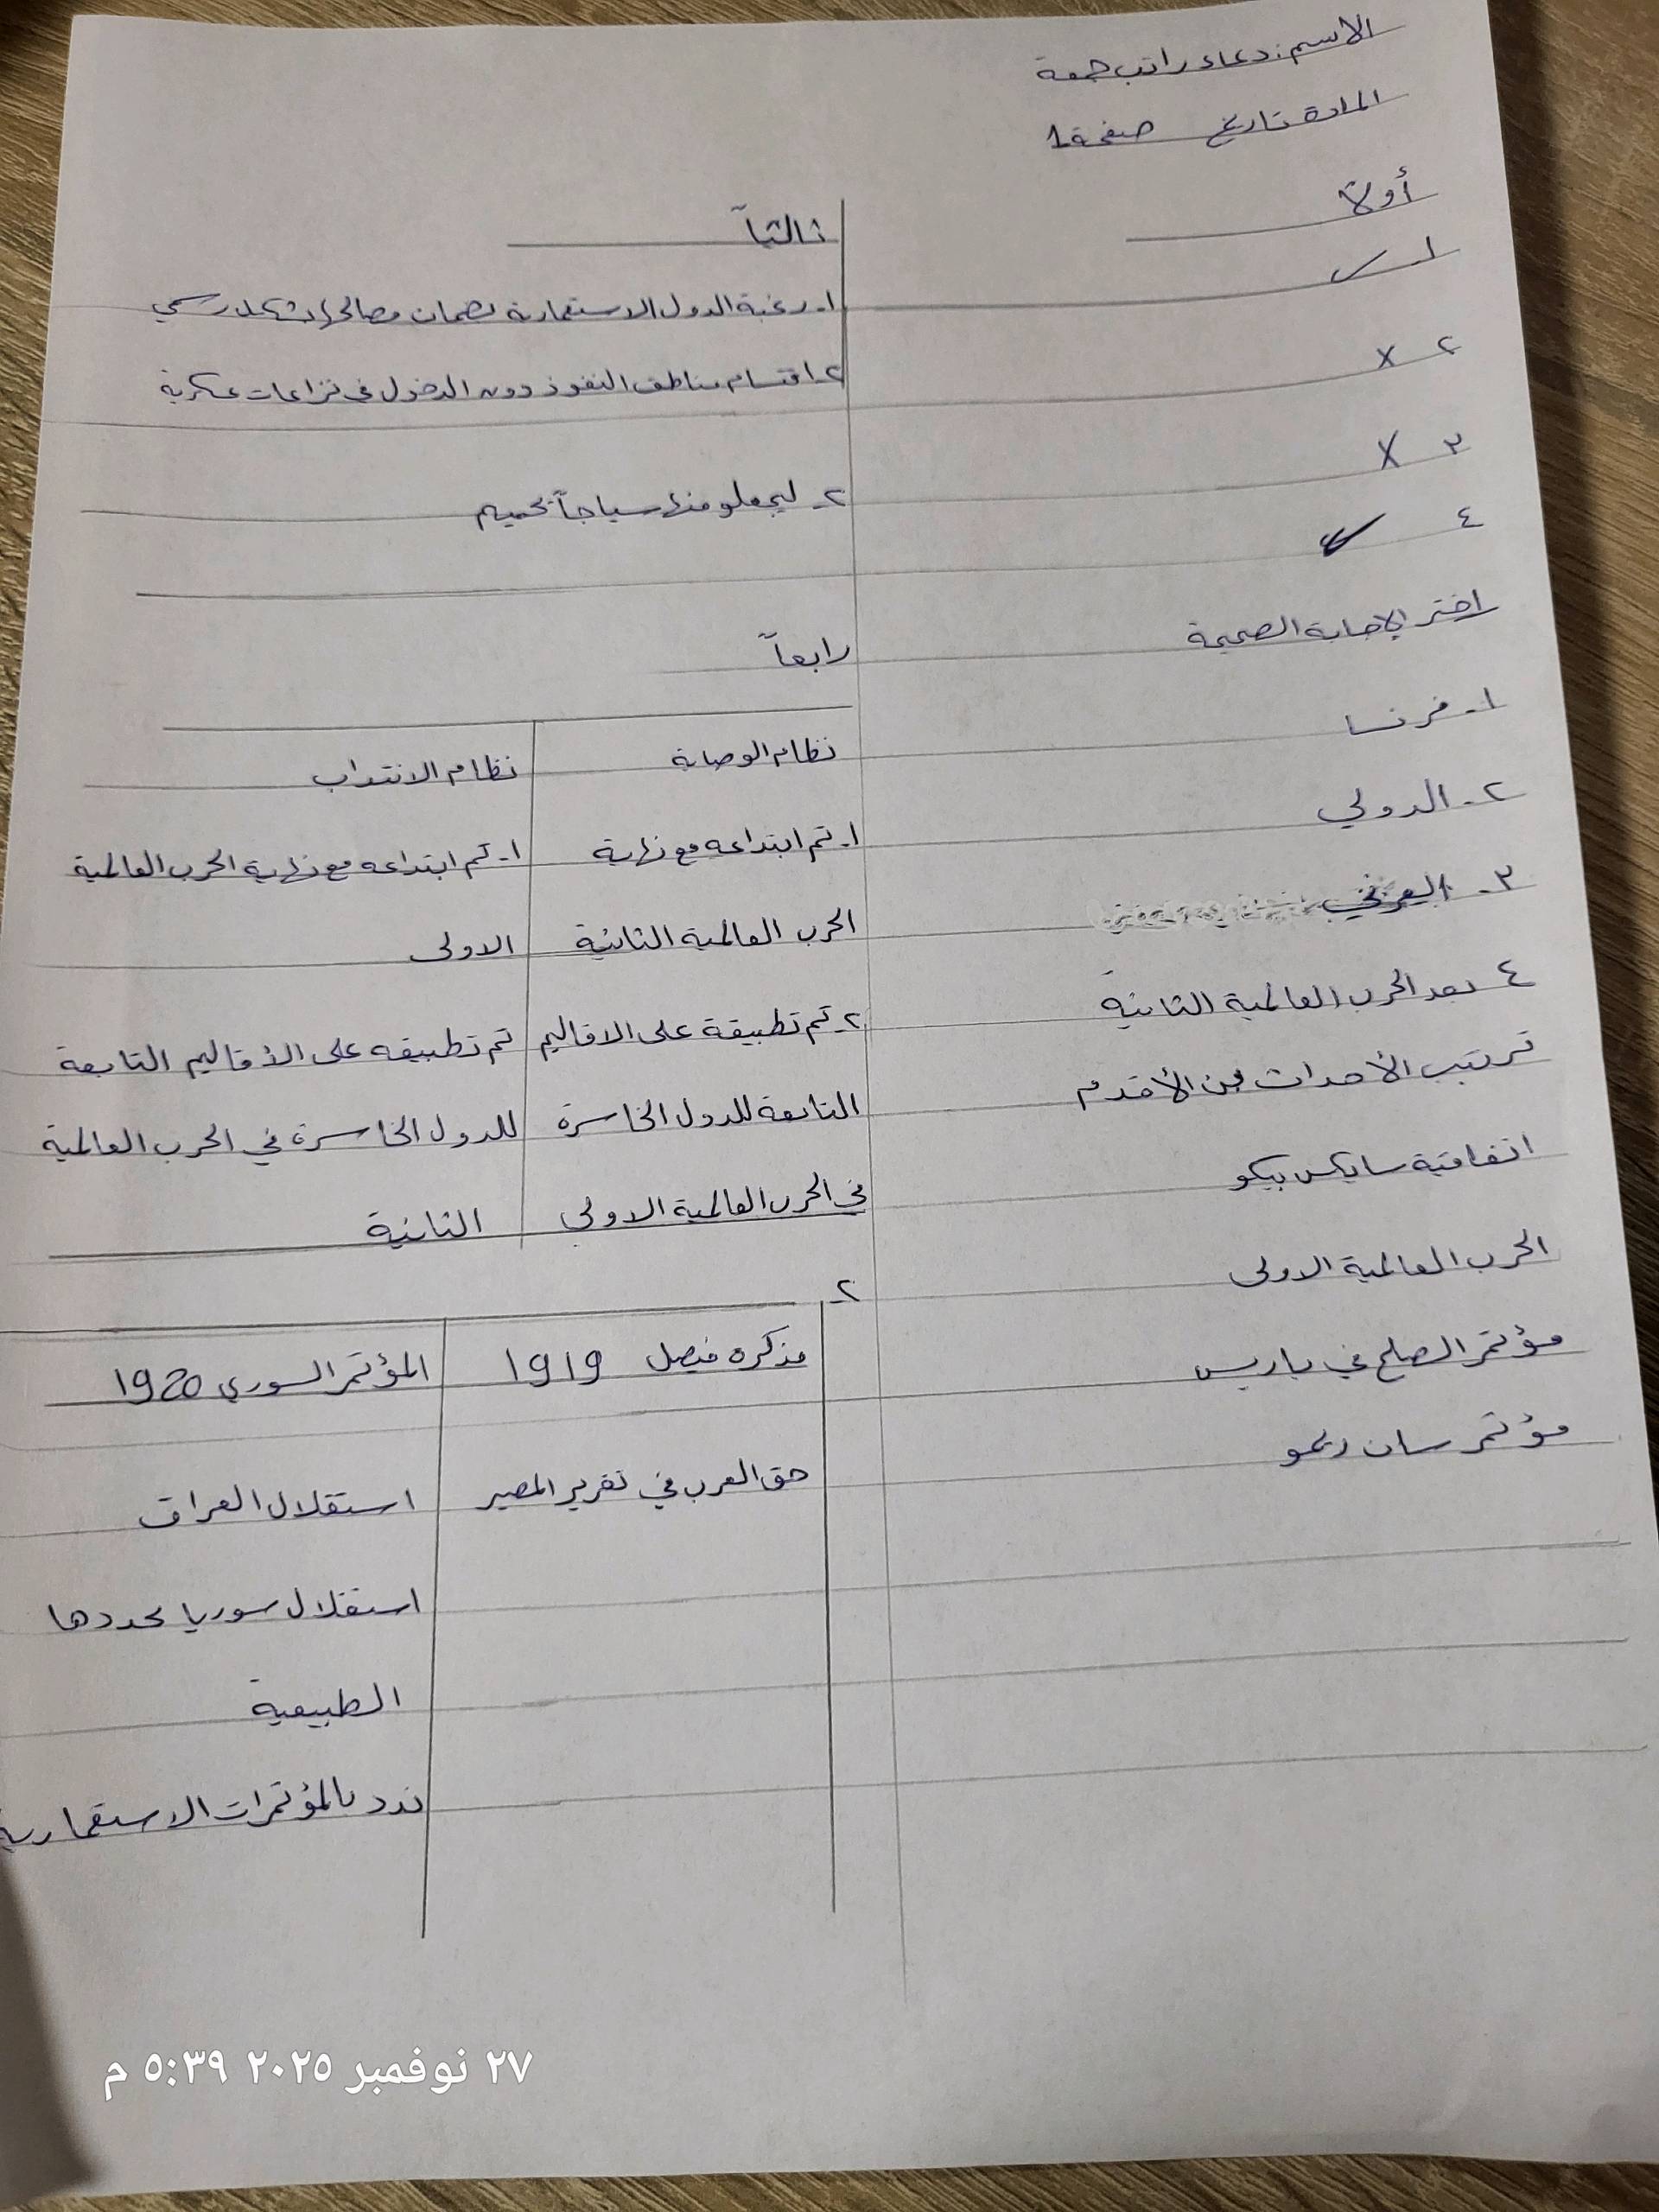 الاسم: دعاء راتب جمعة
المادة تاريخ صفحة 1
أولاً
١- ✓
٢ X
٣ X
٤ ✓
اختر الإجابة الصحيحة
١- فرنسا
٢- الدولي
٣-
٤ بعد الحرب العالمية الثانية
ترتيب الأحداث من الأقدم
اتفاقية سايكس بيكو
الحرب العالمية الاولى
مؤتمر الصلح في باريس
مؤتمر سان ريمو
ثالثاً
١- رغبة الدول الاستعمارية لضمان مصالحها بشكل رسمي
٢- اقتسام مناطق النفوذ دون الدخول في نزاعات عسكرية
٢- ليجعلو منها سياجاً يحميهم
رابعاً
نظام الوصاية نظام الانتداب
١- تم ابتداعه مع نهاية ١- تم ابتداعه مع نهاية الحرب العالمية
الحرب العالمية الثانية الاولى
٢- تم تطبيقة على الاقاليم تم تطبيقه على الأقاليم التابعة
التابعة للدول الخاسرة للدول الخاسرة في الحرب العالمية
في الحرب العالمية الاولى الثانية
٢-
مذكرة فيصل 1919 المؤتمر السوري 1920
حق العرب في تقرير المصير استقلال العراق
استقلال سوريا بحددها
الطبيعية
ندد بالمؤتمرات الاستعمارية
٢٧ نوفمبر ٢٠٢٥ ٥:٣٩ م